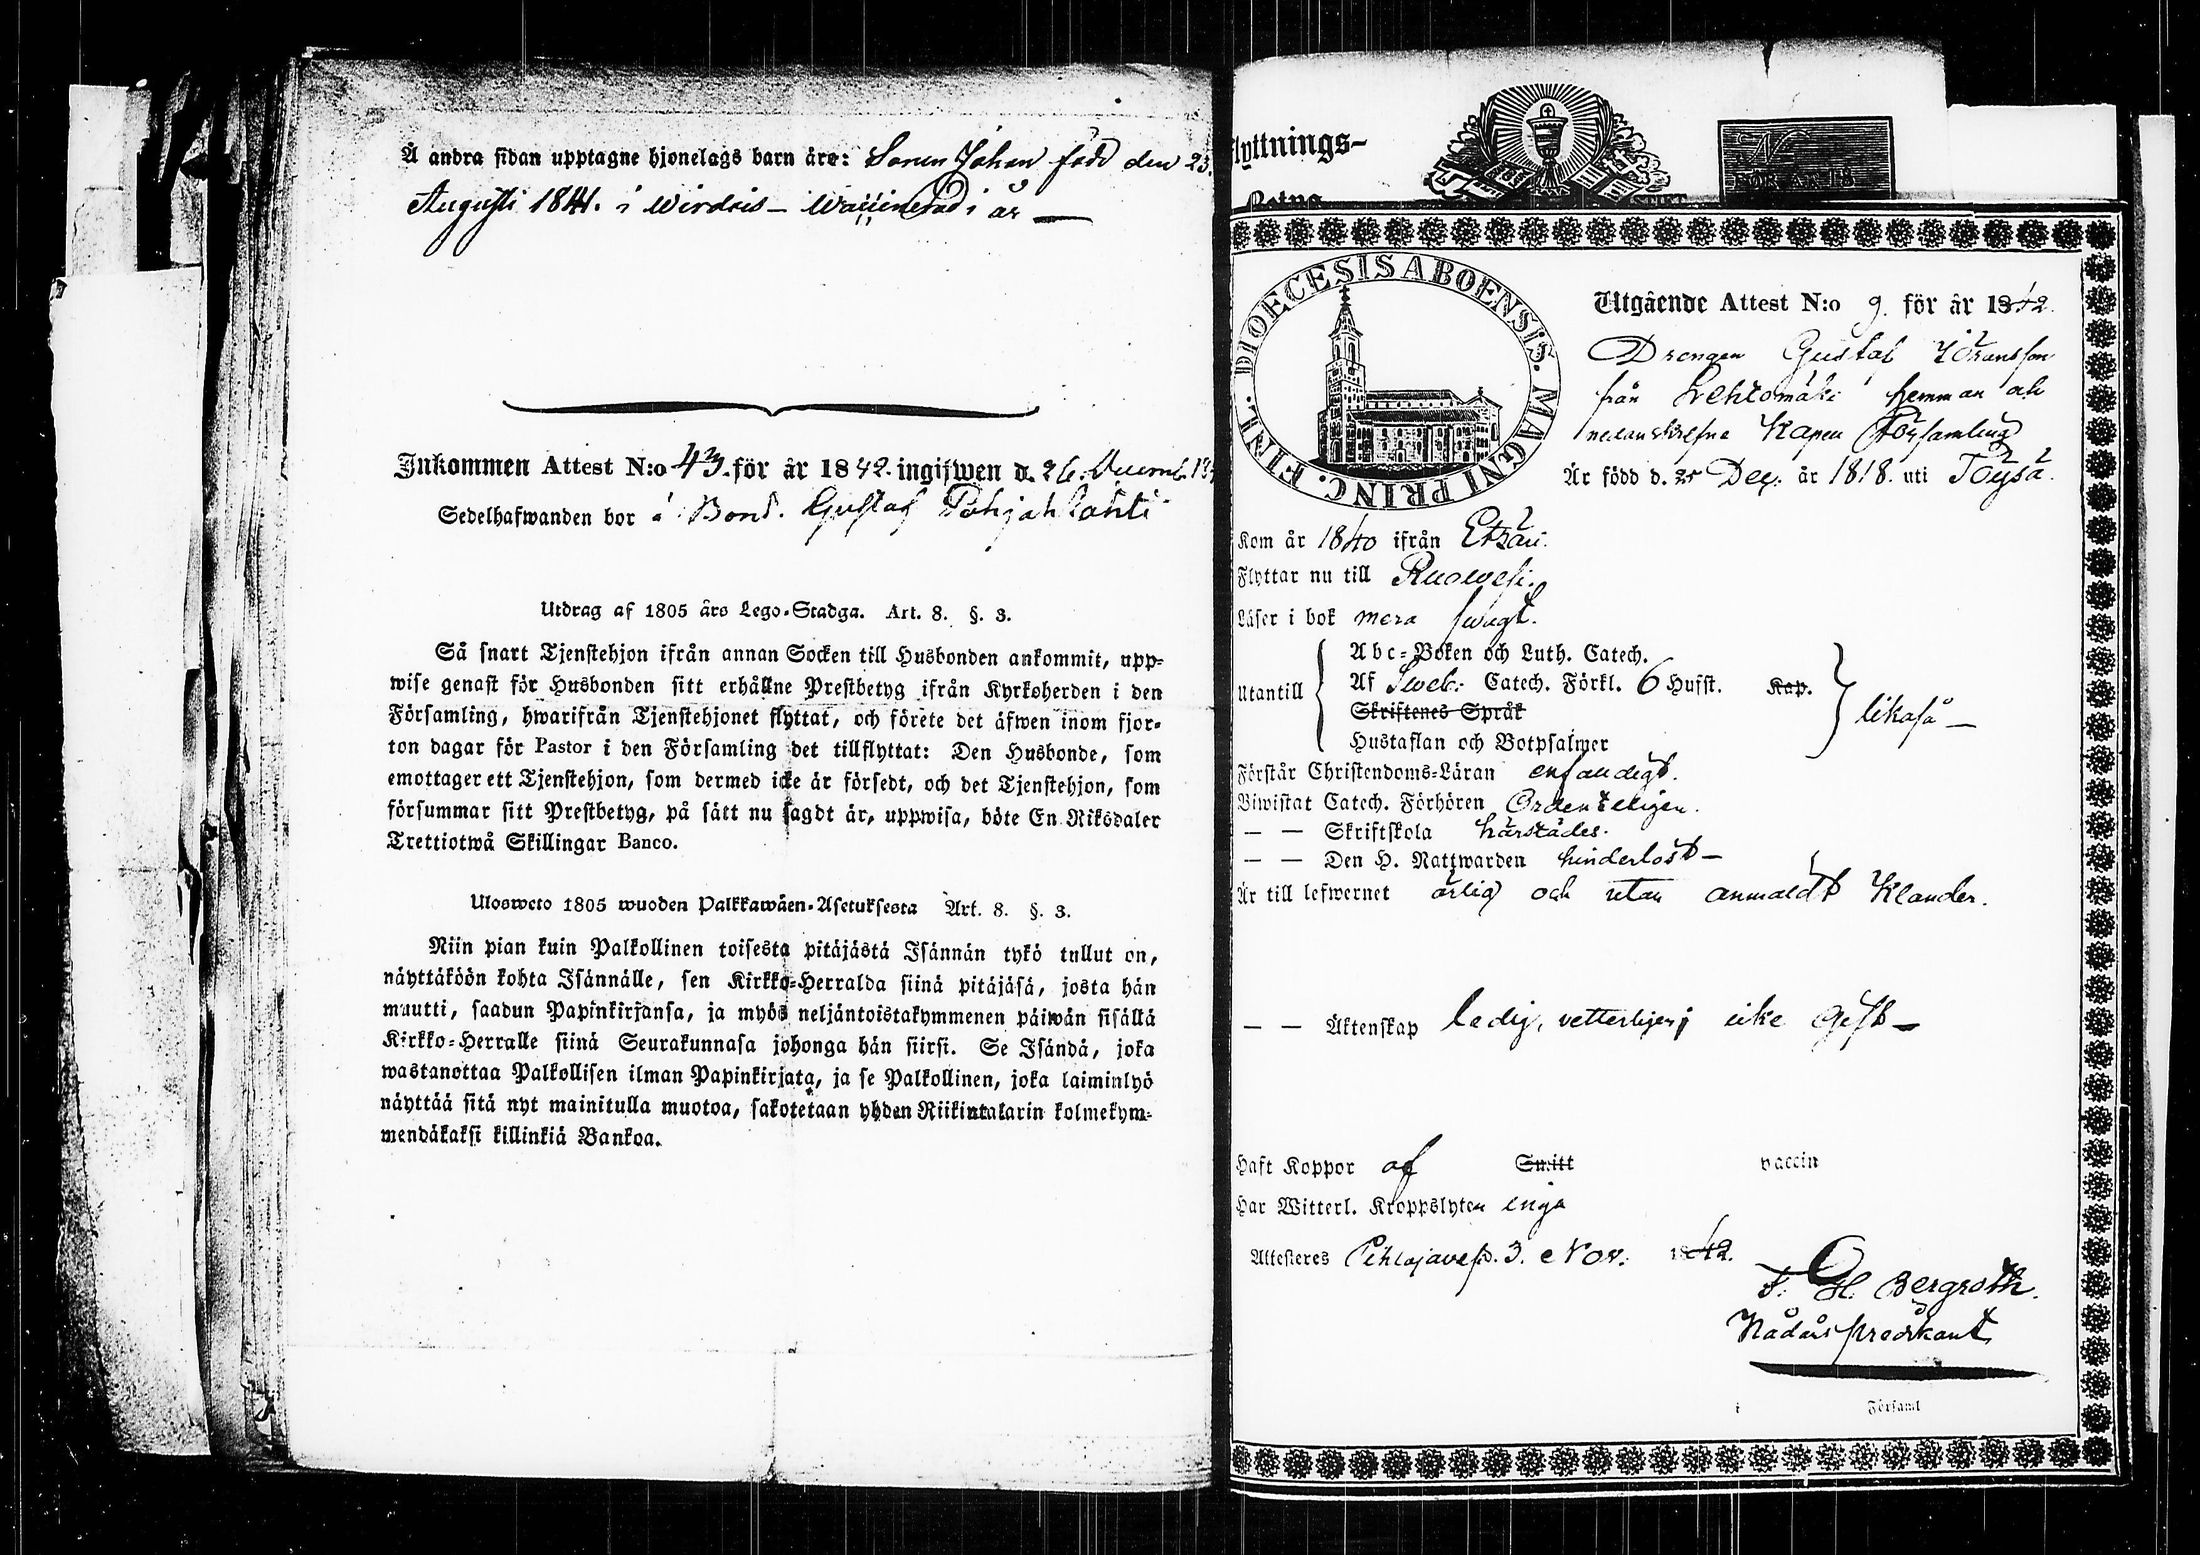 Å andra sidan upptagne hjonelags barn äro: Sonen Johan född den 23.
Augusti 1841. i Wirdois – Waccinerad i år —
Inkommen Attest N:o 43. för år 1842. ingifwen d. 26. Decemb.
Sedelhafwanden bor å Bond. Gustaf Pohjahlahti
Utdrag af 1805 års Lego-Stadga. Art. 8. §. 3.
Så snart Tjenstehjon ifrån annan Socken till Husbonden ankommit, upp-
wise genast för Husbonden sitt erhållne Prestbetyg ifrån Kyrkoherden i den
Församling, hwarifrån Tjenstehjonet flyttat, och förete det äfwen inom fjor-
ton dagar för Pastor i den Församling det tillflyttat: Den Husbonde, som
emottager ett Tjenstehjon, som dermed icke är försedt, och det Tjenstehjon, som
försummar sitt Prestbetyg, på sätt nu sagdt är, uppwisa, böte En Riksdaler
Trettiotwå Skillingar Banco.
Ulosweto 1805 wuoden Palkkawäen-Asetuksesta Art. 8. §. 3.
Niin pian kuin Palkollinen toisesta pitäjästä Isännän tykö tullut on,
näyttäköön kohta Isännälle, sen Kirkko-Herralda siinä pitäjäsä, josta hän
muutti, saadun Papinkirjansa, ja myös neljäntoistakymmenen päiwän sisällä
Kirkko-Herralle siinä Seurakunnasa johonga hän siirsi. Se Isändä, joka
wastanottaa Palkollisen ilman Papinkirjata, ja se Palkollinen, joka laiminlyö
näyttää sitä nyt mainitulla muotoa, sakotetaan yhden Riikintalarin kolmekym-
mendäkaksi killinkiä Bankoa.
lyttnings-
N
FÖR ÅR 18
DIOECESIS ABOENSIS. MAGNI PRINC. FINL.
Utgående Attest N:o 9. för år 1842.
Drengen Gustaf Johansson
från Lehtomäki hemman och
nedanskrefne Kapell Församling
Är född d. 25 Dec. år 1818. uti Töysä.
Kom år 1840 ifrån Etzäri.
Flyttar nu till Ruowesi.
Läser i bok mera swagt.
Abc-Boken och Luth. Catech.
Utantill Af Sweb. Catech. Förkl. 6 Hufst. Kap.
Skriftenes Språk
likaså —
Hustaflan och Botpsalmer
Förstår Christendoms-Läran enfaldigt.
Biwistat Catech. Förhören Ordenteligen.
— — Skriftskola härstädes.
— — Den H. Nattwarden hinderlöst —
Är till lefwernet ärlig och utan anmäldt Klander.
— — Äktenskap ledig, vetterligen icke Gift —
Haft Koppor af Smitt vaccin
Har Witterl. Kroppslyten inga
Attesteres Pihlajavesi d. 3. Nov. 1842.
F. H. Bergroth.
Nådårs predikant
i Församl